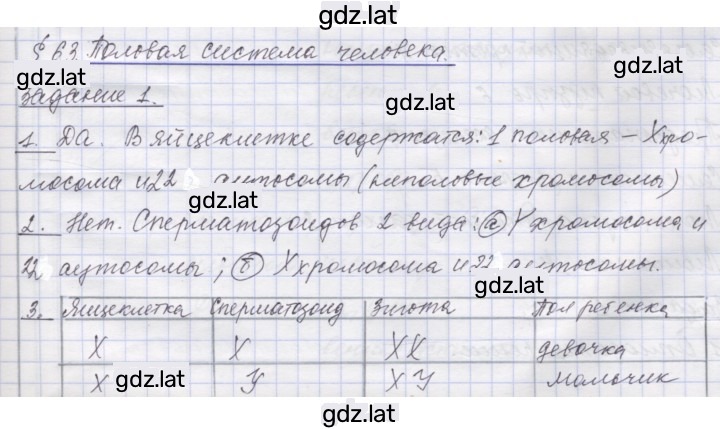 gdz.lat
§ 63. Половая система человека.
gdz.lat gdz.lat
Задание 1.
gdz.lat
1. Да. В яйцеклетке содержатся: 1 половая – X хро-
мосома и 22 аутосомы (неполовые хромосомы)
gdz.lat
2. Нет. Сперматозоидов 2 вида: а Y хромосома и
22 аутосомы; б X хромосома и 22 аутосомы.
gdz.lat
3. Яйцеклетка Сперматозоид Зигота Пол ребенка
X X XX девочка
X У XУ мальчик
gdz.lat
gdz.lat